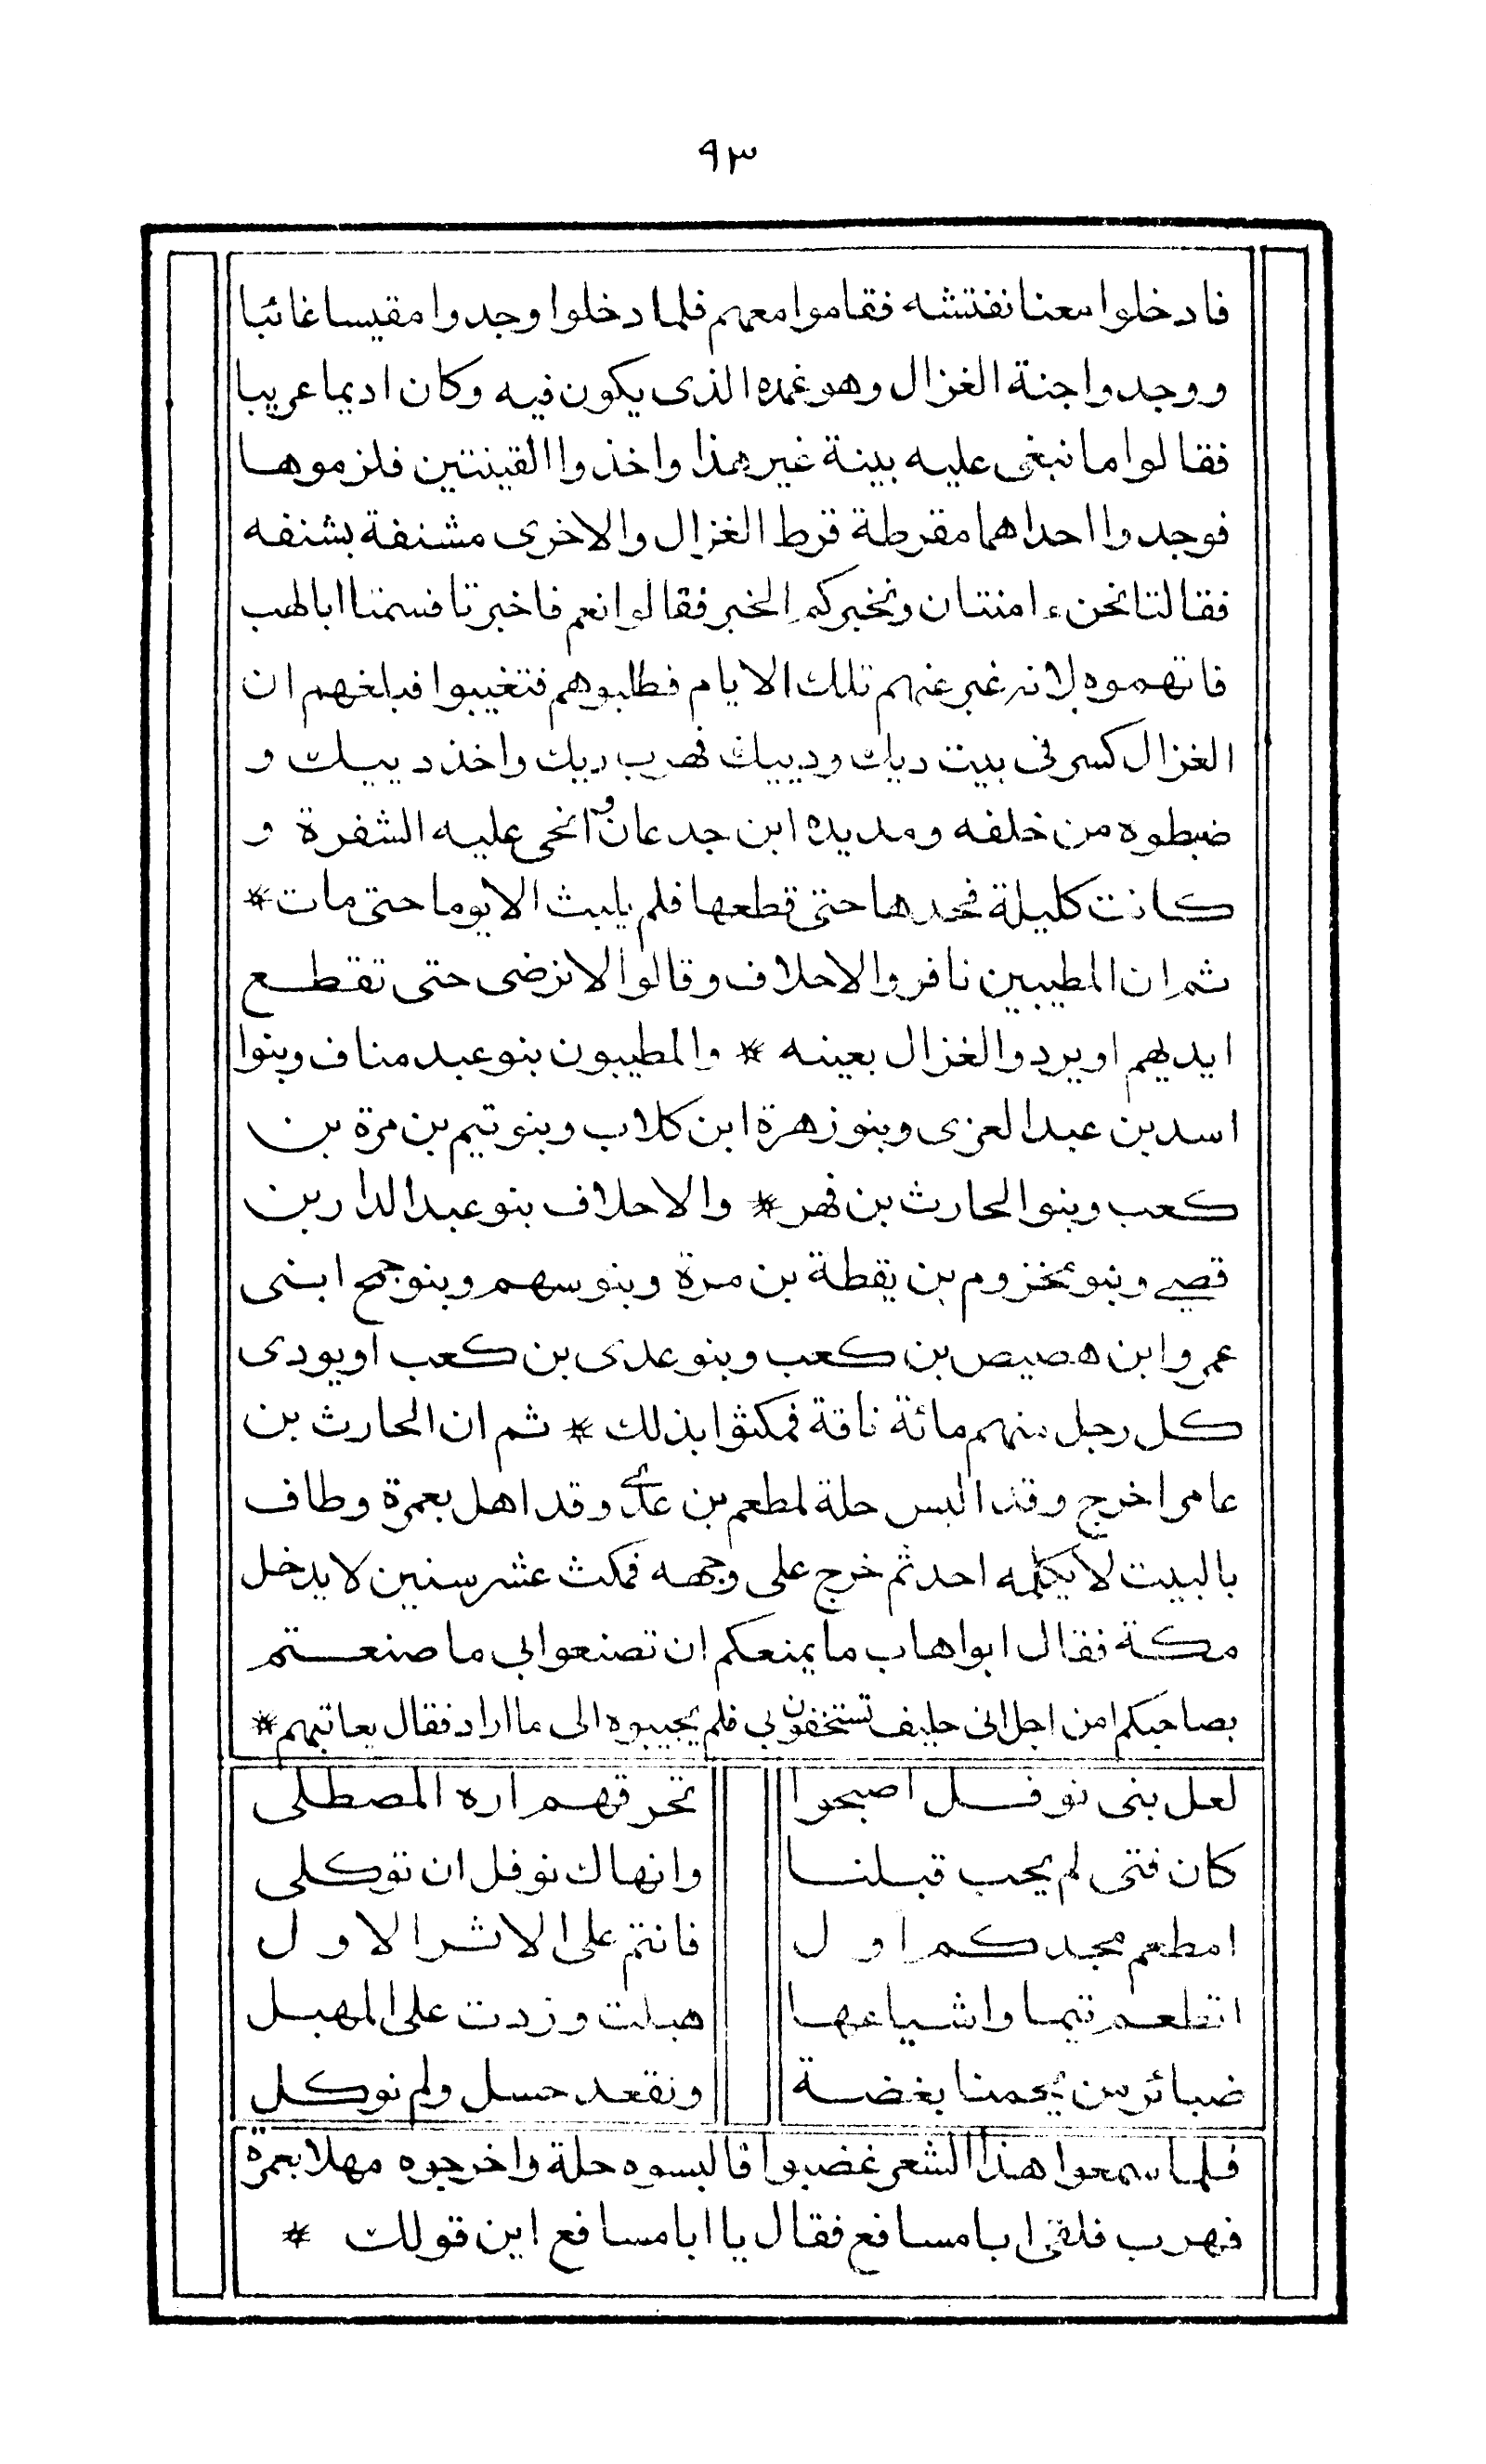 ٩٣
فادخلوا معنا نفتشه فقاموا معهم فلما دخلوا وجدوا مقيسا غائبا
ووجدوا جنة الغزال وهو غمده الذى يكون فيه وكان اديما عربيا
فقالوا ما نبغى عليه بينة غير هذا واخذوا القينتين فلزموها
فوجدوا احداهما مقرطة قرط الغزال والاخرى مشنفة بشنفه
فقالتا نحن ءامنتان ونخبركم الخبر فقالوا نعم فاخبرتا فسمتا ابالهب
فاتهموه لانه غبر عنهم تلك الايام فطلبوهم فتغيبوا فبلغهم ان
الغزال كسر فى بيت ديك ودييك فهرب ديك واخذ دييك و
ضبطوه من خلفه ومد يده ابن جدعان وانحى عليه الشفرة و
كانت كليلة فحدها حتى قطعها فلم يلبث الا يوما حتى مات *
ثم ان المطيبين نافروا الاحلاف وقالوا لا نرضى حتى تقطع
ايديهم او يردوا الغزال بعينه * والمطيبون بنو عبد مناف وبنوا
اسد بن عبد العزى وبنو زهرة ابن كلاب وبنو تيم بن مرة بن
كعب وبنوا الحارث بن فهر * والاحلاف بنو عبد الدار بن
قصى وبنو مخزوم بن يقظة بن مرة وبنو سهم وبنو جمح ابنى
عمرو ابن هصيص بن كعب وبنو عدى بن كعب او يودى
كل رجل منهم مائة ناقة فمكثوا بذلك * ثم ان الحارث بن
عامر اخرج وقد البس حلة لمطعم بن عدى وقد اهل بعمرة وطاف
بالبيت لا يكلمه احد ثم خرج على وجهه فمكث عشر سنين لا يدخل
مكة فقال ابو اهاب ما يمنعكم ان تصنعوا بى ما صنعتم
بصاحبكم امن اجل انى حليف تستخفون بى فلم يجيبوه الى ما اراد فقال يعاتبهم *
لعل بنى نوفل اصبحوا تحرقهم اره المصطلى
كان فتى لم يحب قبلنا وانهاك نوفل ان توكلى
امطعم مجدكم اول فانتم على الاثر الاول
اتطعم تيما واشياعها هبلت وزدت على المهبل
ضبائر من يحمنا بغضة ونقعد حسل ولم نوكل
فلما سمعوا هذا الشعر غضبوا فالبسوه حلة واخرجوه مهلا بعمرة
فهرب فلقى ابا مسافع فقال يا ابا مسافع اين قولك *